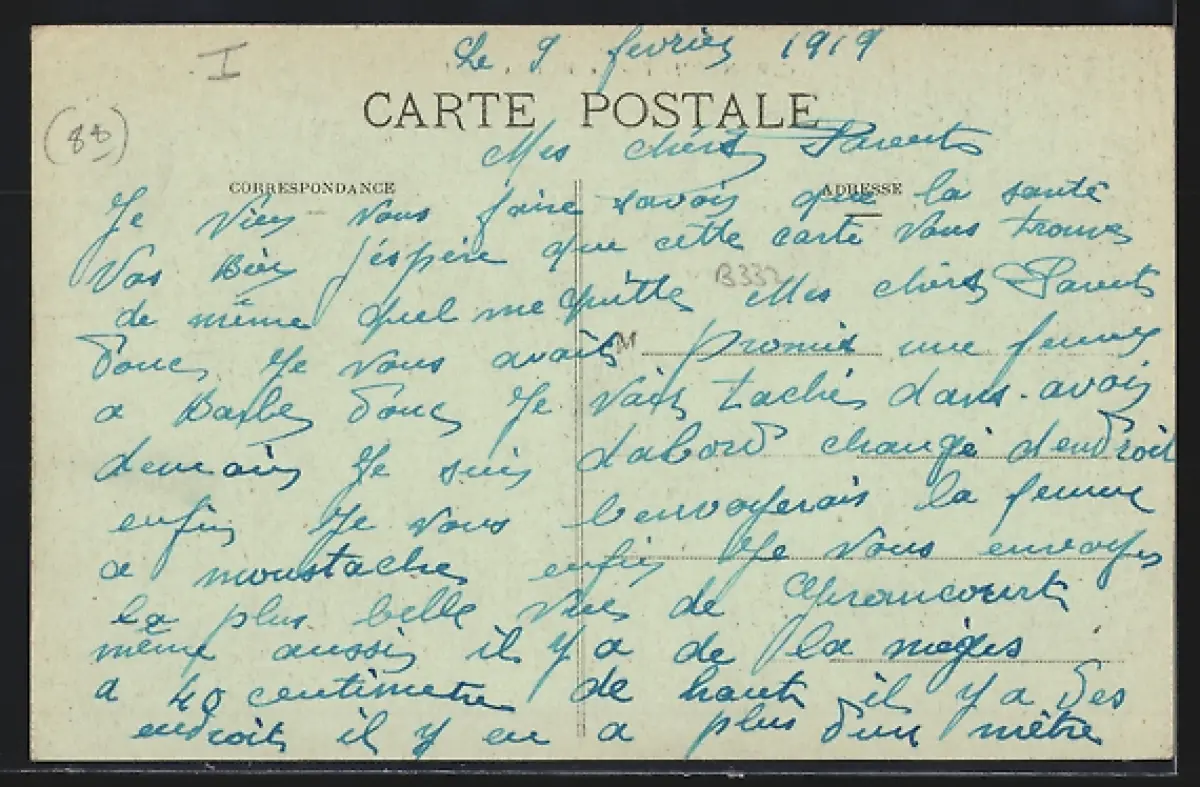 I
Le 9 fevrier 1919
(88)
CARTE POSTALE
Mes chérs Parents
CORRESPONDANCE
ADRESSE
Je Viens Vous faire savoir que la santé
Vas Bien J'éspère que cette carte Vous trouves
B332
de même quel me quitte Mes chérs Parents
M
donc Je vous avais promis une femme
a Barbe donc Je Vais tachés dans avoir
demain Je suis dabord changé dendroit
enfin Je vous lenvoyerais la femme
a moustache enfin Je Vous envoyes
la plus belle Vues de
même aussi il y a de la nèiges
a 40 centimetre de haut il y a des
endroit il y en a plus d'un mêtre